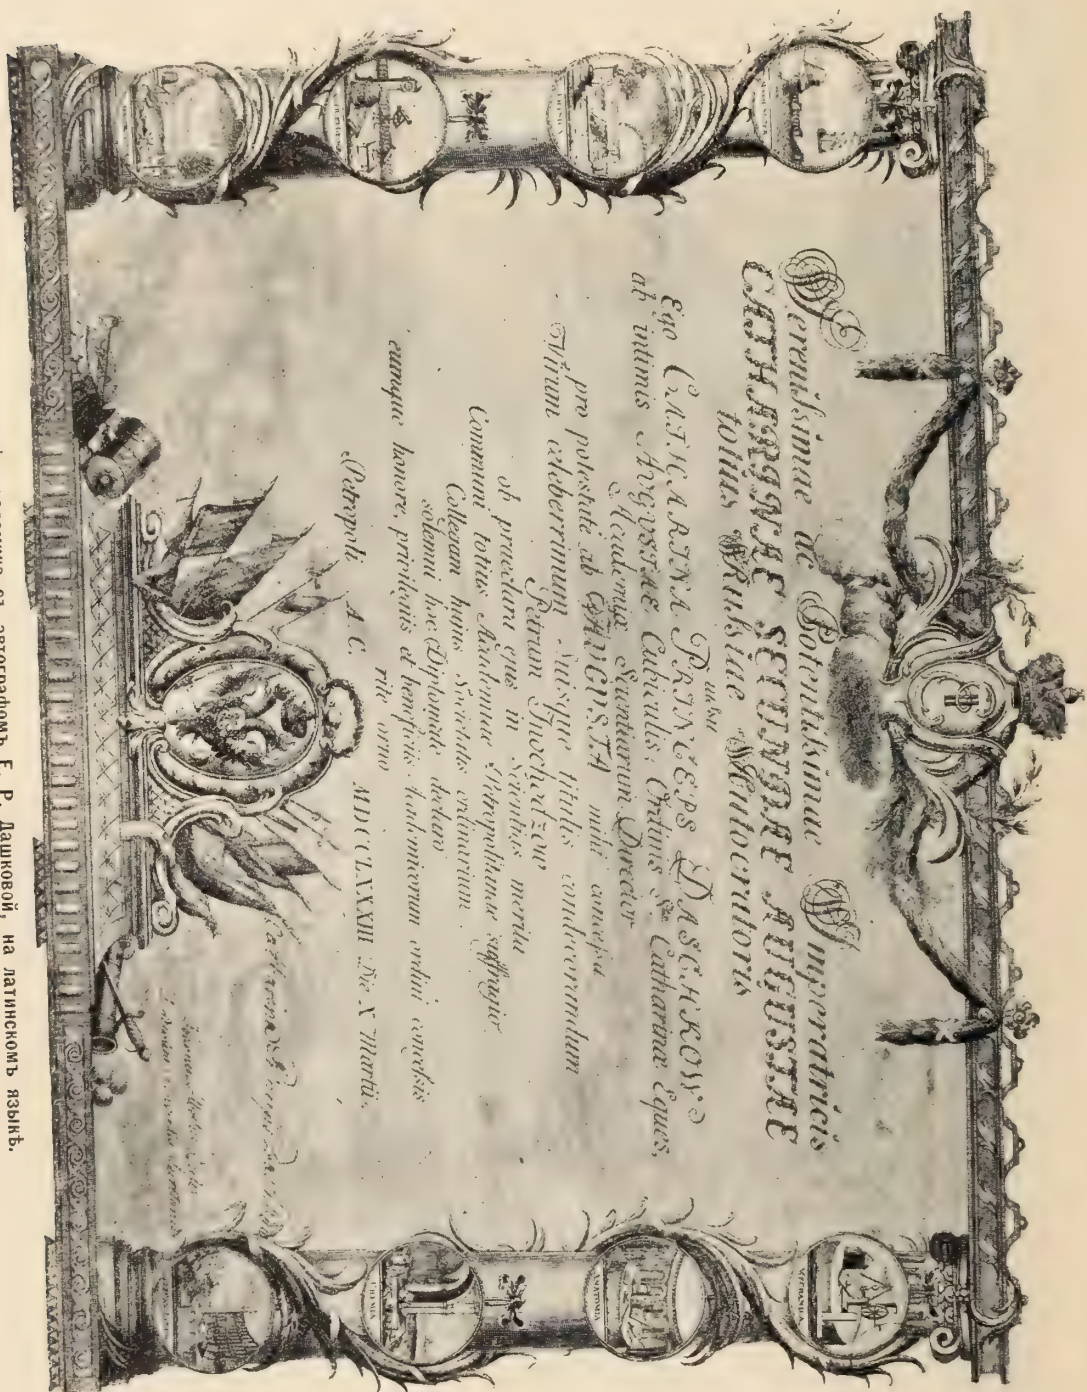 Serenissimae ac Potentissimae Imperatricis
CATHARINAE SECUNDAE AUGUSTAE
totius Russiae Autocratoris
iussu
Ego CATHARINA PRINCEPS DASCHKOW
ab intimis AVGVSTAE Cubiculis, Ordinis Sæ Catharinæ Eques,
Academiæ Scientiarum Director
pro potestate ab AUGUSTA mihi concessa
Virum celeberrimum suisque titulis condecorandum
Petrum Inochodzow
ob praeclara ejus in Scientias merita
Communi totius Academiae Petropolitanae suffragio
Collegam hujus Societatis ordinarium
solemni hoc Diplomate declaro
eumque honore, privilegiis et beneficiis Academicorum ordini concessis
rite orno
Petropoli A.C. MDCCLXXXIII Die X Martii.
Catharina
CHEMIA
ANATOMIA
съ автографомъ Е. Р. Дашковой, на латинскомъ языкѣ.